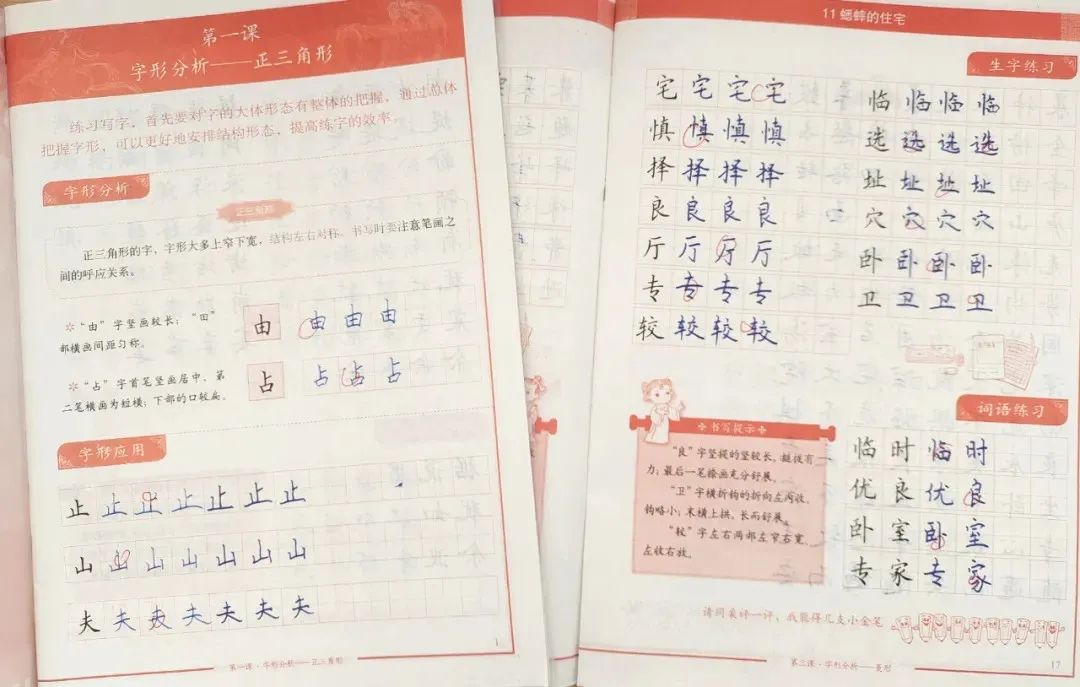 第一课
字形分析——正三角形
练习写字，首先要对字的大体形态有整体的把握，通过总体
把握字形，可以更好地安排结构形态，提高练字的效率。
字形分析
正三角形
正三角形的字，字形大多上窄下宽，结构左右对称。书写时要注意笔画之
间的呼应关系。
“由”字竖画较长；“田”
部横画间距匀称。
由 由 由 由
“占”字首笔竖画居中，第
二笔横画为短横；下部的口较扁。
占 占 占 占
字形应用
止 止 止 止 止 止 止
山 山 山 山 山 山 山
夫 夫 夫 夫 夫 夫 夫
1
第一课·字形分析——正三角形
11 蟋蟀的住宅
生字练习
宅 宅 宅 宅 临 临 临 临
慎 慎 慎 慎 选 选 选 选
择 择 择 择 址 址 址 址
良 良 良 良 穴 穴 穴 穴
厅 厅 厅 厅 卧 卧 卧 卧
专 专 专 专 卫 卫 卫 卫
较 较 较 较
词语练习
书写提示
“良”字竖提的竖较长，挺拔有
力；最后一笔捺画充分舒展。
“卫”字横折钩的折向左内收，
钩略小；末横上拱，长而舒展。
“较”字左右两部左窄右宽，
左收右放。
临 时 临 时
优 良 优 良
卧 室 卧 室
专 家 专 家
请同桌评一评，我能得几支小金笔
第三课·字形分析——菱形
17